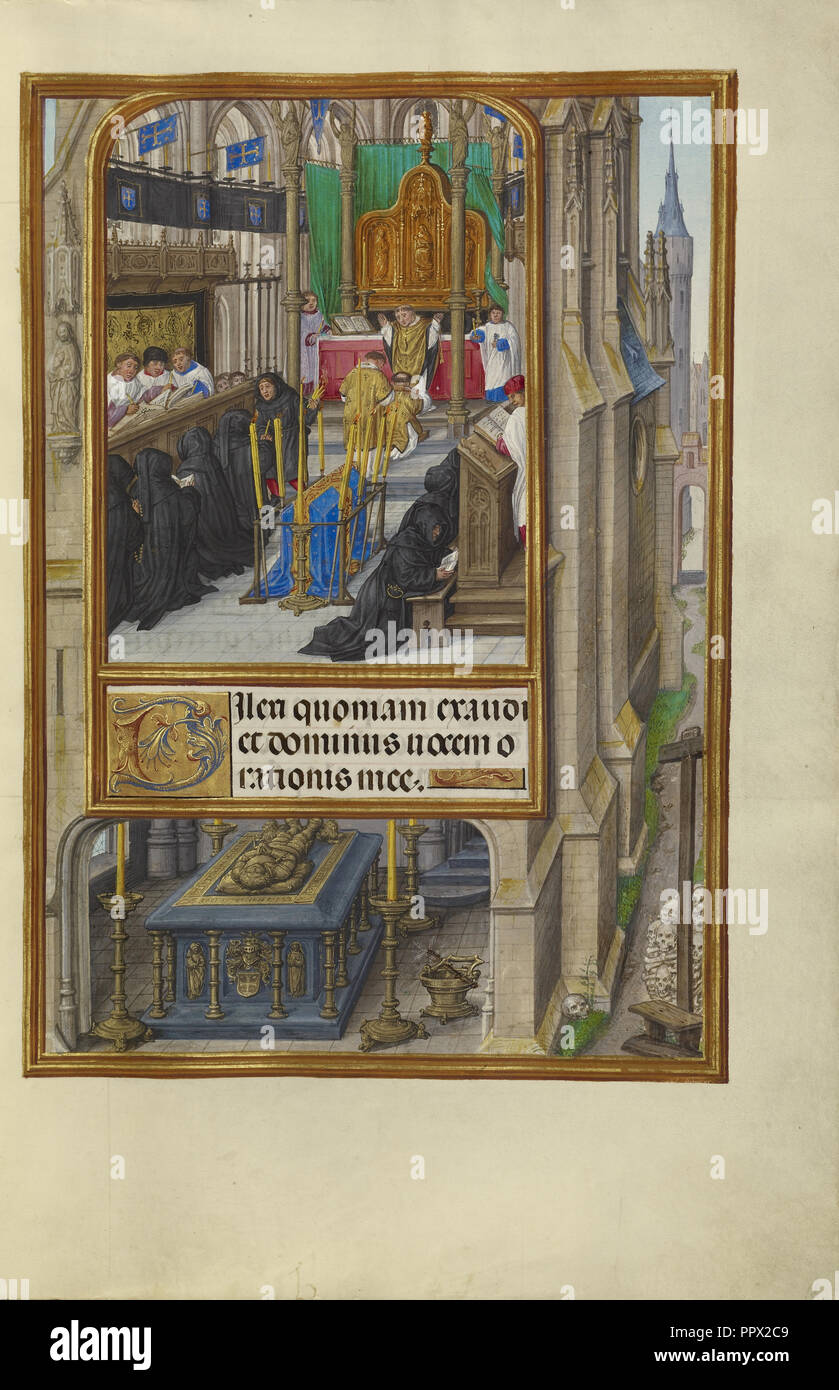 Dilexi quoniam exaudi
et dominus vocem o
rationis mee
alamy
Image ID: PPX2C9
www.alamy.com